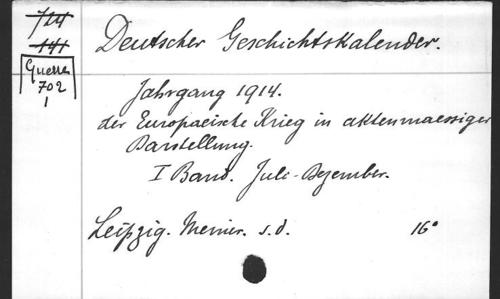 714
141
Guerre
702
1
Deutscher Geschichtskalender.
Jahrgang 1914.
der Europaeische Krieg in aktenmaessiger
Darstellung.
I Band. Juli-Dezember.
Leipzig. Meiner. s.d. 16°